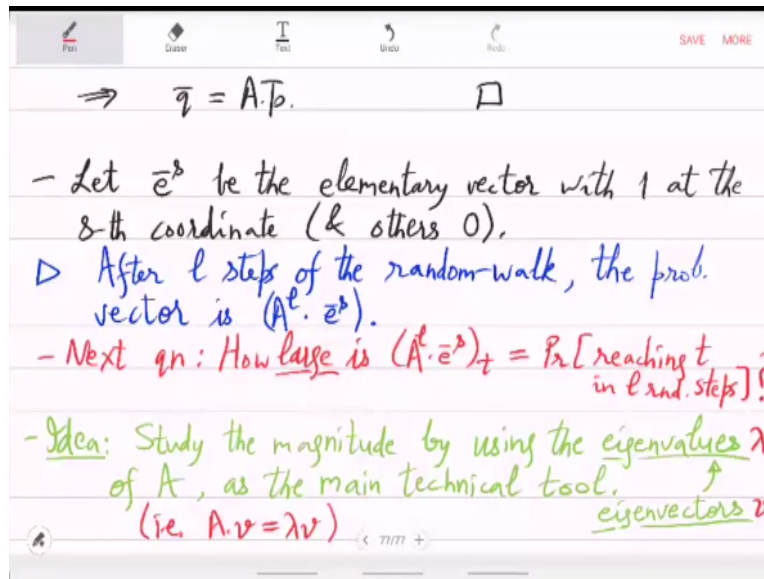 Pen Eraser Text Undo Redo SAVE MORE
⇒ q̄ = A.p̄. □
- Let ē^s be the elementary vector with 1 at the
s-th coordinate (& others 0).
▷ After l steps of the random-walk, the prob.
vector is (A^l. ē^s).
- Next qn: How large is (A^l.ē^s)_t = Pr[reaching t
in l rnd. steps]?
- Idea: Study the magnitude by using the eigenvalues λ
of A, as the main technical tool. ↑
(i.e. A.v = λv) eigenvectors v